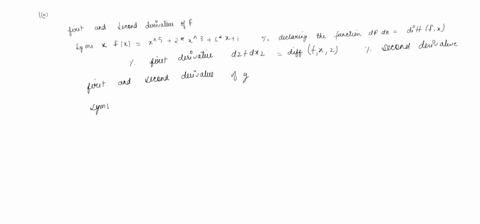 1(a)
first and second derivatives of f
syms x f(x) = x^5 + 2*x^3 + 6*x+1 % declaring the function df dx = diff (f,x)
% first derivative d2f dx2 = diff (f,x,2) % second derivative
first and second derivative of g
syms